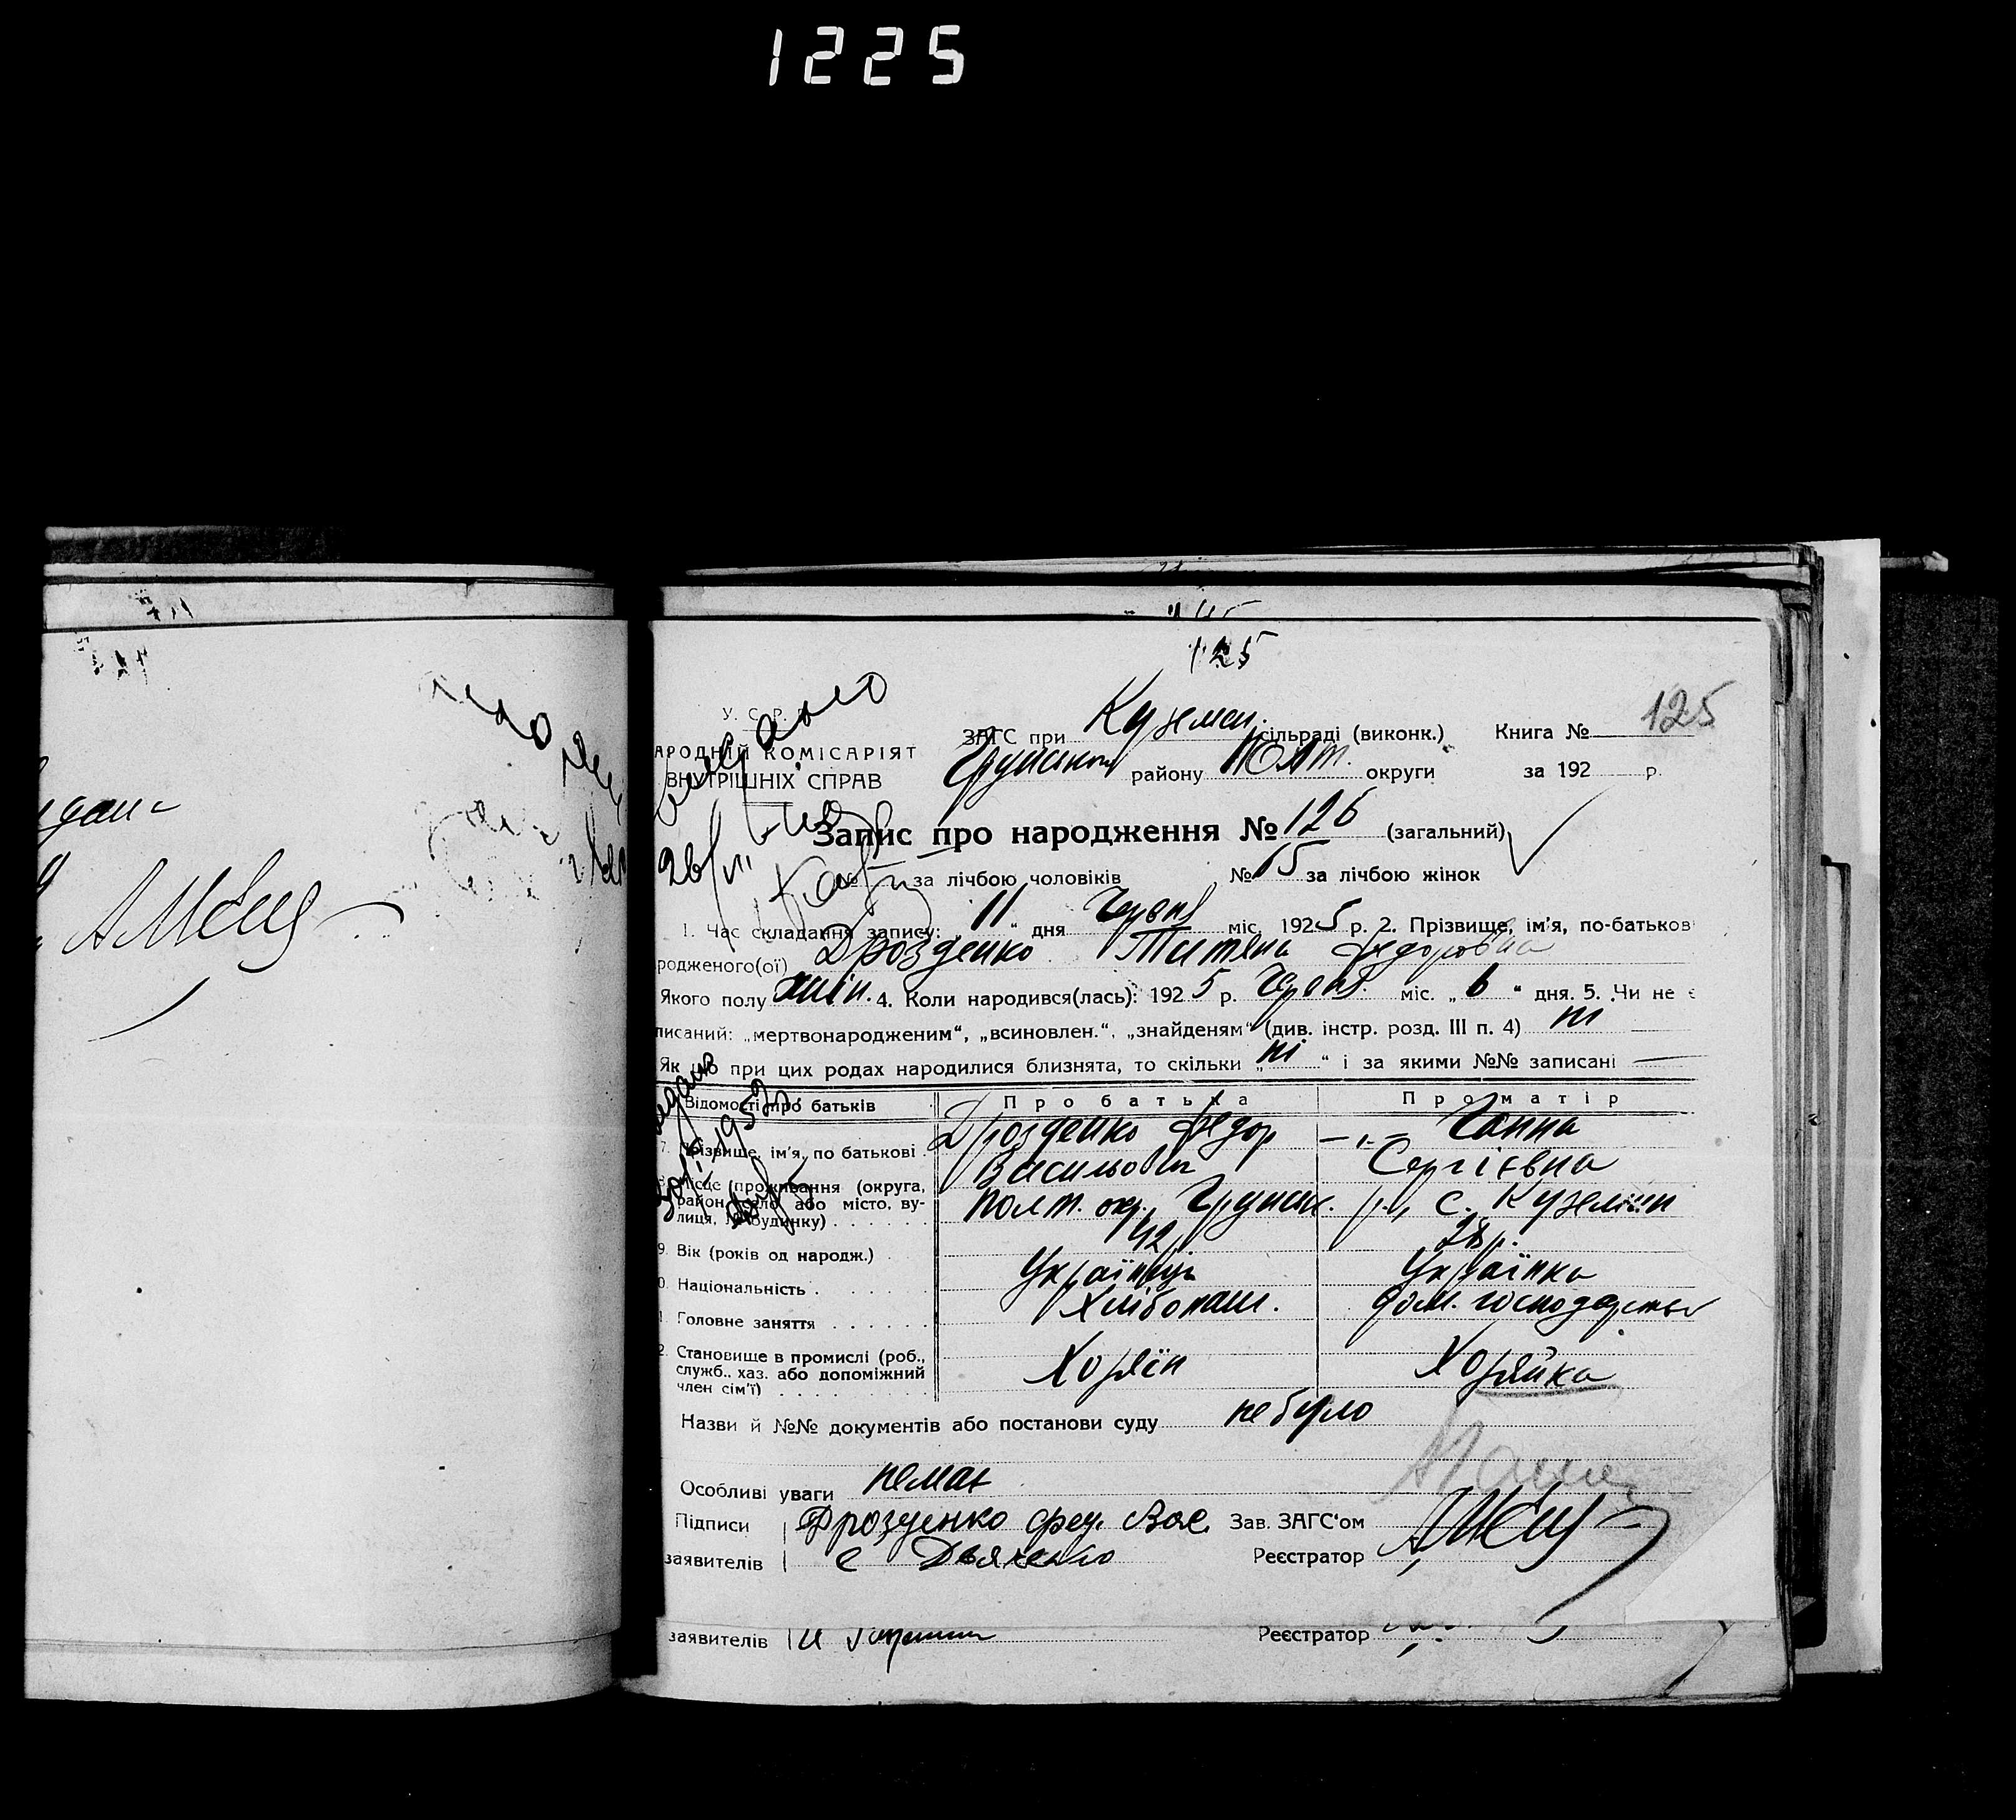 1225
125
125
У. С. Р. Р.
АРОДНІЙ КОМІСАРІЯТ
ВНУТРІШНІХ СПРАВ
ЗАГС при Куземен. сільраді (виконк.) Книга №
району Полт. округи за 192 р.
Запис про народження № 126 (загальний)
№ за лічбою чоловіків № 65 за лічбою жінок
1. Час складання запису: „ 11 “ дня Червня міс. 1925 р. 2. Прізвище, ім'я, по-батькові
родженого(ої) Дрозденко Титяна Федоровна
Якого полу жін. 4. Коли народився(лась): 1925 р. Червня міс. „ 6 “ дня. 5. Чи не є
писаний: „мертвонародженим“, „всиновлен.“, „знайденям“ (див. інстр. розд. III п. 4) ні
Як що при цих родах народилися близнята, то скільки „ ні “ і за якими №№ записані —
Відомості про батьків Про батька Про матір
7. Прізвище, ім'я, по батькові Дрозденко Федор —„— Ганна
Васильович Сергієвна
8. Місце проживання (округа, район, село або місто, ву-
лиця, № будинку) Полт. окр., Грунськ. р., с. Куземин
9. Вік (років од народж.) 42 28 р.
0. Національність Українець Українка
1. Головне заняття Хлібопаш. дом. господарства
2. Становище в промислі (роб.,
служб., хаз. або допоміжний
член сім'ї) Хозяїн Хозяйка
Назви й №№ документів або постанови суду не було
Особливі уваги немає
Підписи Дрозденко Фед. Вас. Зав. ЗАГС'ом
заявителів Дьяченко Реєстратор
заявителів Реєстратор